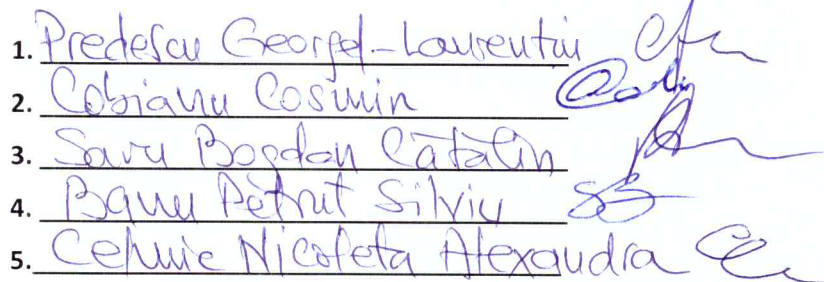 1. Predescu Georgel-Laurentiu
2. Cobianu Cosmin
3. Savu Bogdan Cătălin
4. Banu Petrut Silviu
5. Nicoleta Alexandra